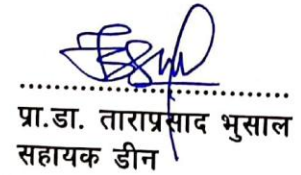 प्रा.डा. ताराप्रसाद भुसाल
सहायक डीन